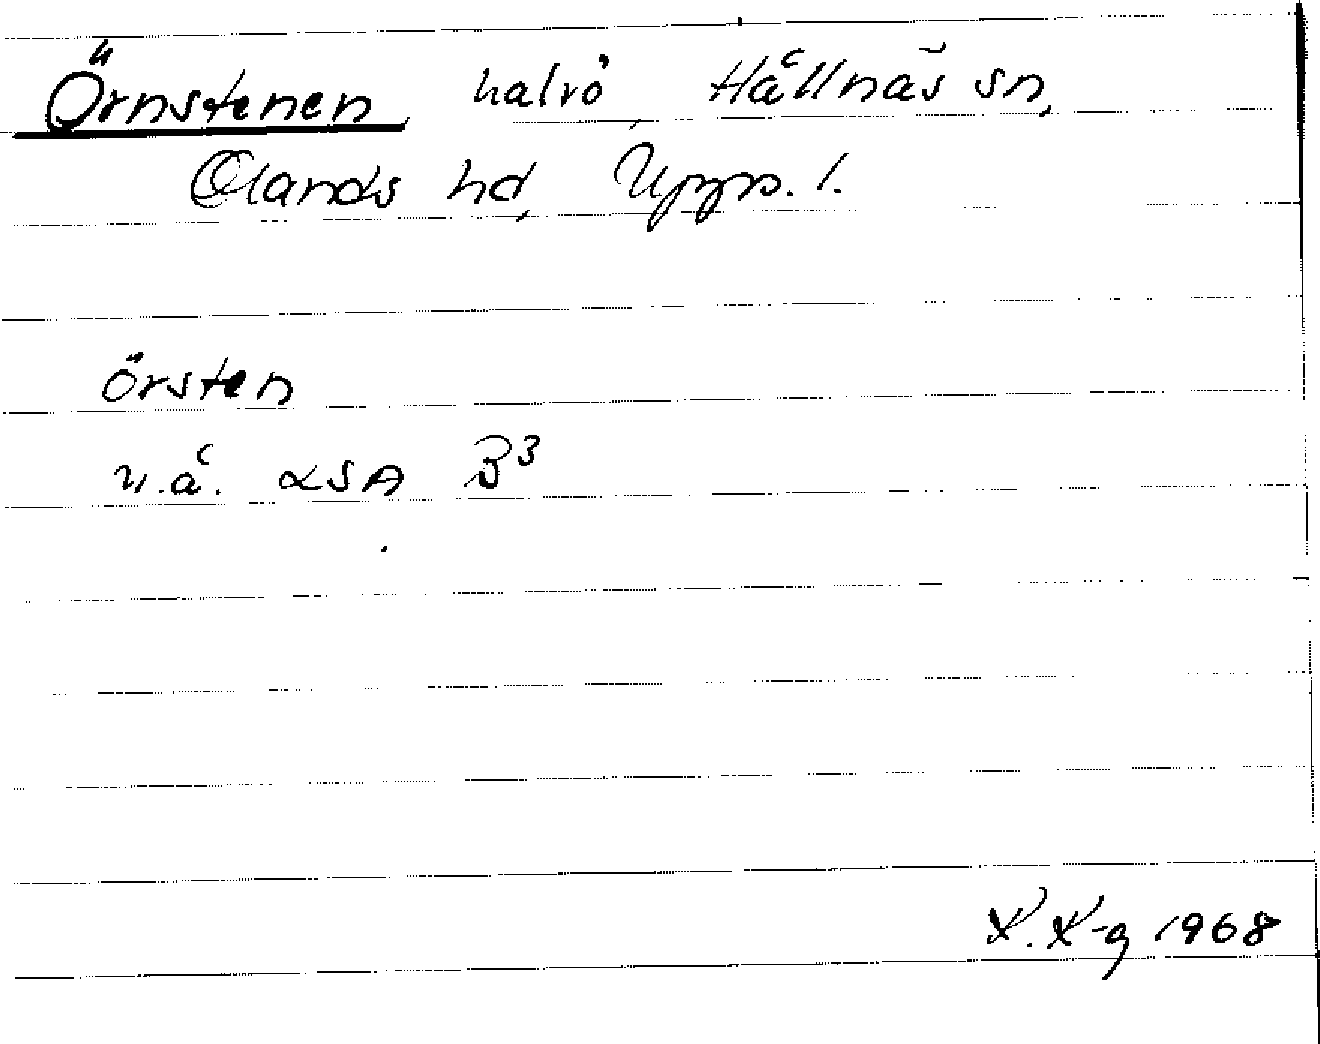 Örnstenen, halvö, Hållnäs sn,
Olands hd, Upps. l.
örsten
u.å. LSA B³
K. K-g 1968